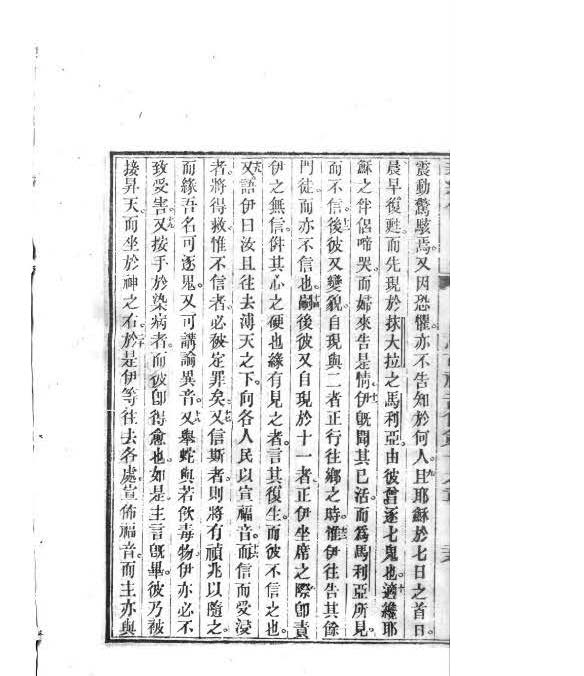 震動驚駭焉又因恐懼亦不告知於何人九且耶穌於七日之首日
晨早復甦而先現於抹大拉之馬利亞由彼曾逐七鬼也適纔耶
穌之伴侶啼哭而婦來告是情十一伊旣聞其已活而爲馬利亞所見
而不信後彼又變貌自現與二者正行往鄉之時十三惟伊往告其餘
門徒而亦不信也十四嗣後彼又自現於十一者正伊坐席之際卽責
伊之無信倂其心之硬也緣有見之者言其復生而彼不信之也
十五又語伊曰汝且往去溥天之下向各人民以宣福音十六而信而受浸
者將得救惟不信者必被定罪矣十七又信斯者則將有禎兆以隨之
而緣吾名可逐鬼又可講論異音十八又舉蛇與若飮毒物伊亦必不
致受害又按手於染病者而彼卽得愈也十九如是主言旣畢彼乃被
接昇天而坐於神之右二十於是伊等往去各處宣佈福音而主亦與